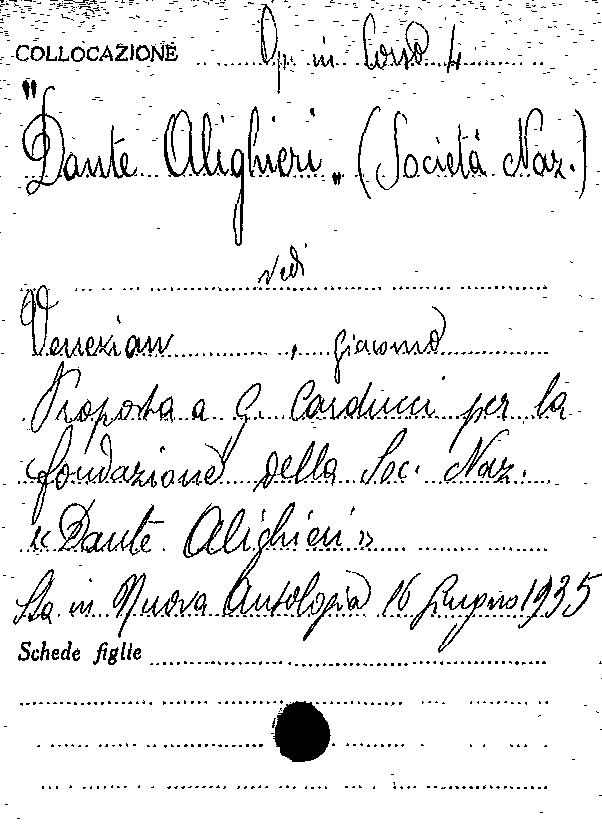 COLLOCAZIONE Op. in Corso 4
"Dante Alighieri„ (Società Naz.)
vedi
Venezian, Giacomo
Proposta a G. Carducci per la
fondazione della Soc. Naz.
«Dante Alighieri»
Sta in Nuova Antologia 16 Giugno 1935
Schede figlie